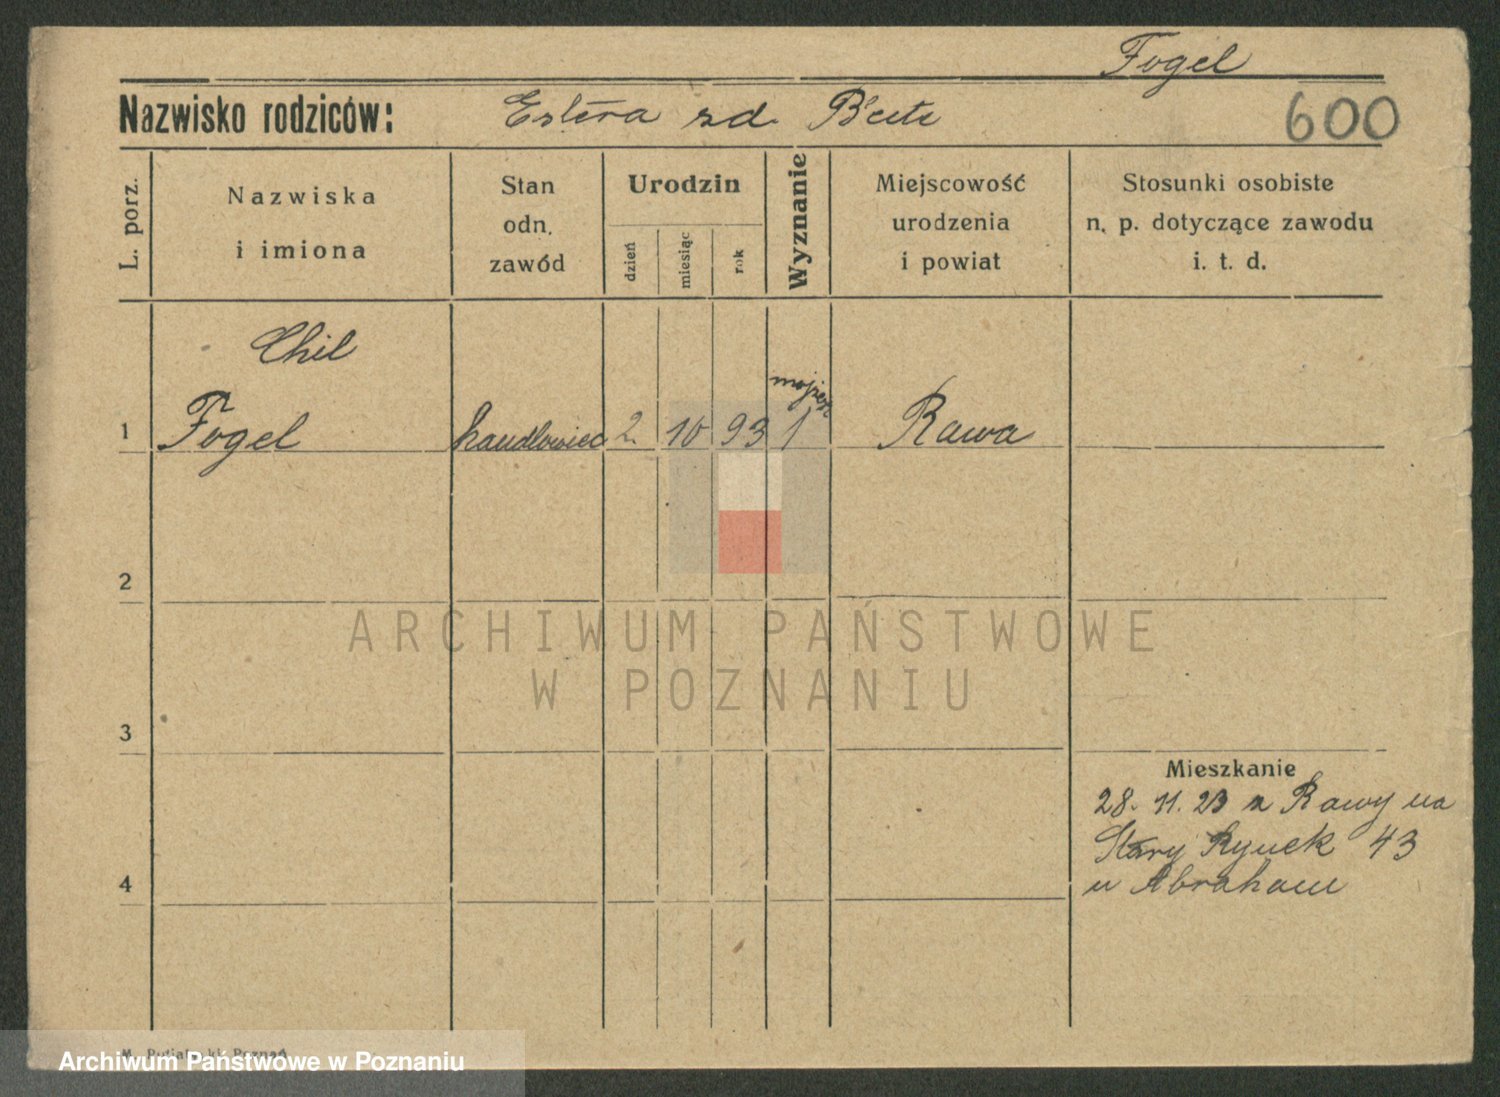 Fogel
Nazwisko rodziców: Estera zd.
600
L. porz.
Nazwiska
i imiona
Stan
odn.
zawód
Urodzin
dzień
miesiąc
rok
Wyznanie
Miejscowość
urodzenia
i powiat
Stosunki osobiste
n. p. dotyczące zawodu
i. t. d.
Chil
1 Fogel handlowiec 2. 10 93 mojżesz Rawa
2
ARCHIWUM PAŃSTWOWE
W POZNANIU
3
Mieszkanie
28. 11. 23 z Rawy na
Stary Rynek 43
u Abraham
4
Archiwum Państwowe w Poznaniu